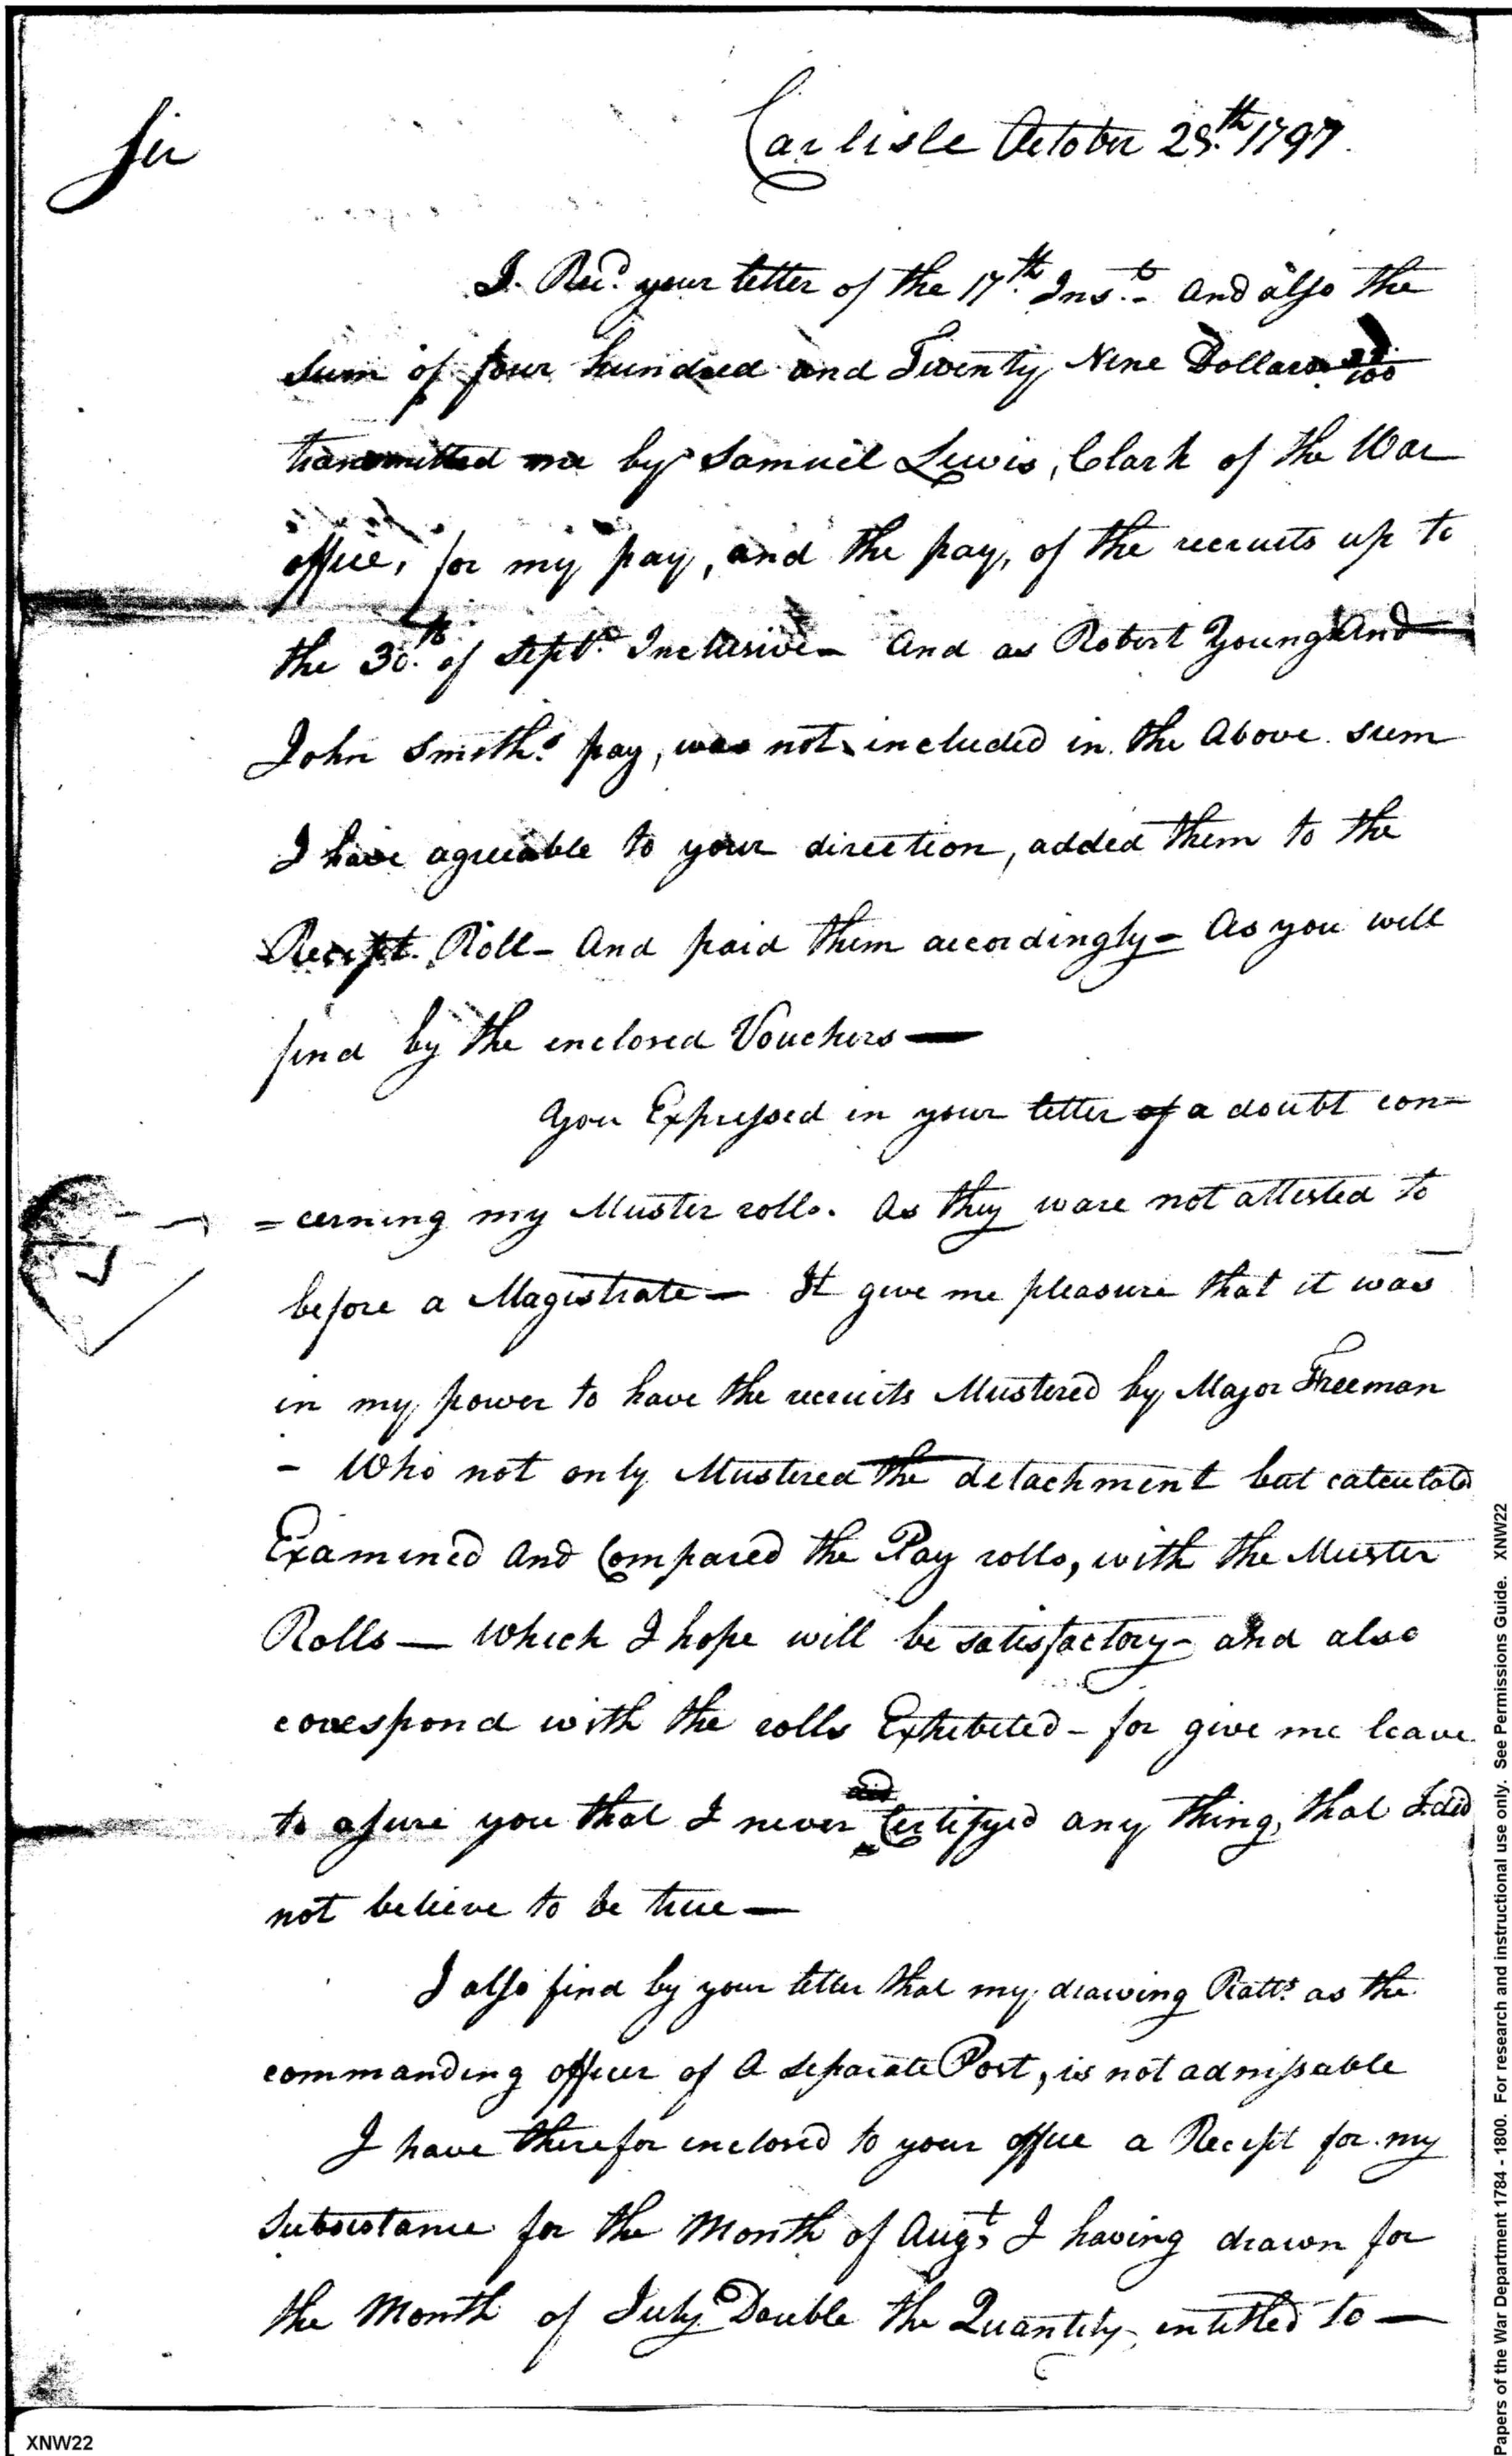 Sir
Carlisle October 28th 1797.
I. Recd. your letter of the 17th Inst.- And also the
sum of four hundred and Twenty Nine Dollars /100
transmitted me by Samuel Lewis, Clark of the War
office, for my pay, and the pay, of the recruits up to
the 30th of Septr. Inclusive- And as Robert Young And
John Smith's pay, was not included in the Above sum
I have agreeable to your direction, added them to the
Recipt. Roll- And paid them accordingly- As you will
find by the enclosed Vouchers—
You Expressed in your letter of a doubt con=
=cerning my Muster rolls. As they ware not attested to
before a Magistrate— It give me pleasure that it was
in my power to have the recruits Mustered by Major Freeman
- Who not only Mustered the detachment but calculated
Examined And Compared the Pay rolls, with the Muster
Rolls— Which I hope will be satisfactory- and also
corespond with the rolls Exhibited- for give me leave
to asure you that I never Certifyed any thing, that I did
not believe to be true—
I also find by your letter that my drawing Ratts. as the
commanding officer of A Separate Post, is not admissable
I have therefor enclosed to your office a Recipt for my
Subsistance for the Month of Augt, I having drawn for
the Month of July Double the Quantity, entitled to—
XNW22
Papers of the War Department 1784 - 1800. For research and instructional use only. See Permissions Guide. XNW22